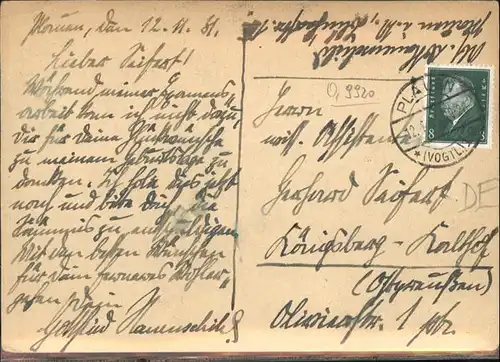 Plauen, den 12. 11. 31.
Lieber Seifert!
Während meiner Examens-
arbeit kam ich nicht dazu,
dir für deine Glückwünsche
zu meinem Geburtstage zu
danken. Ich hole dies jetzt
nach und bitte dich, die
Säumnis zu entschuldigen.
Mit den besten Wünschen
für dein ferneres Wohler-
gehen dein
Gottfried Hauenschild
Plauen i. V.,
9920
PLAUEN
(VOGTL)
8 8
Herrn
wiss. Assistent
Gerhard Seifert
Königsberg-Kalthof
(Ostpreußen)
1
DE